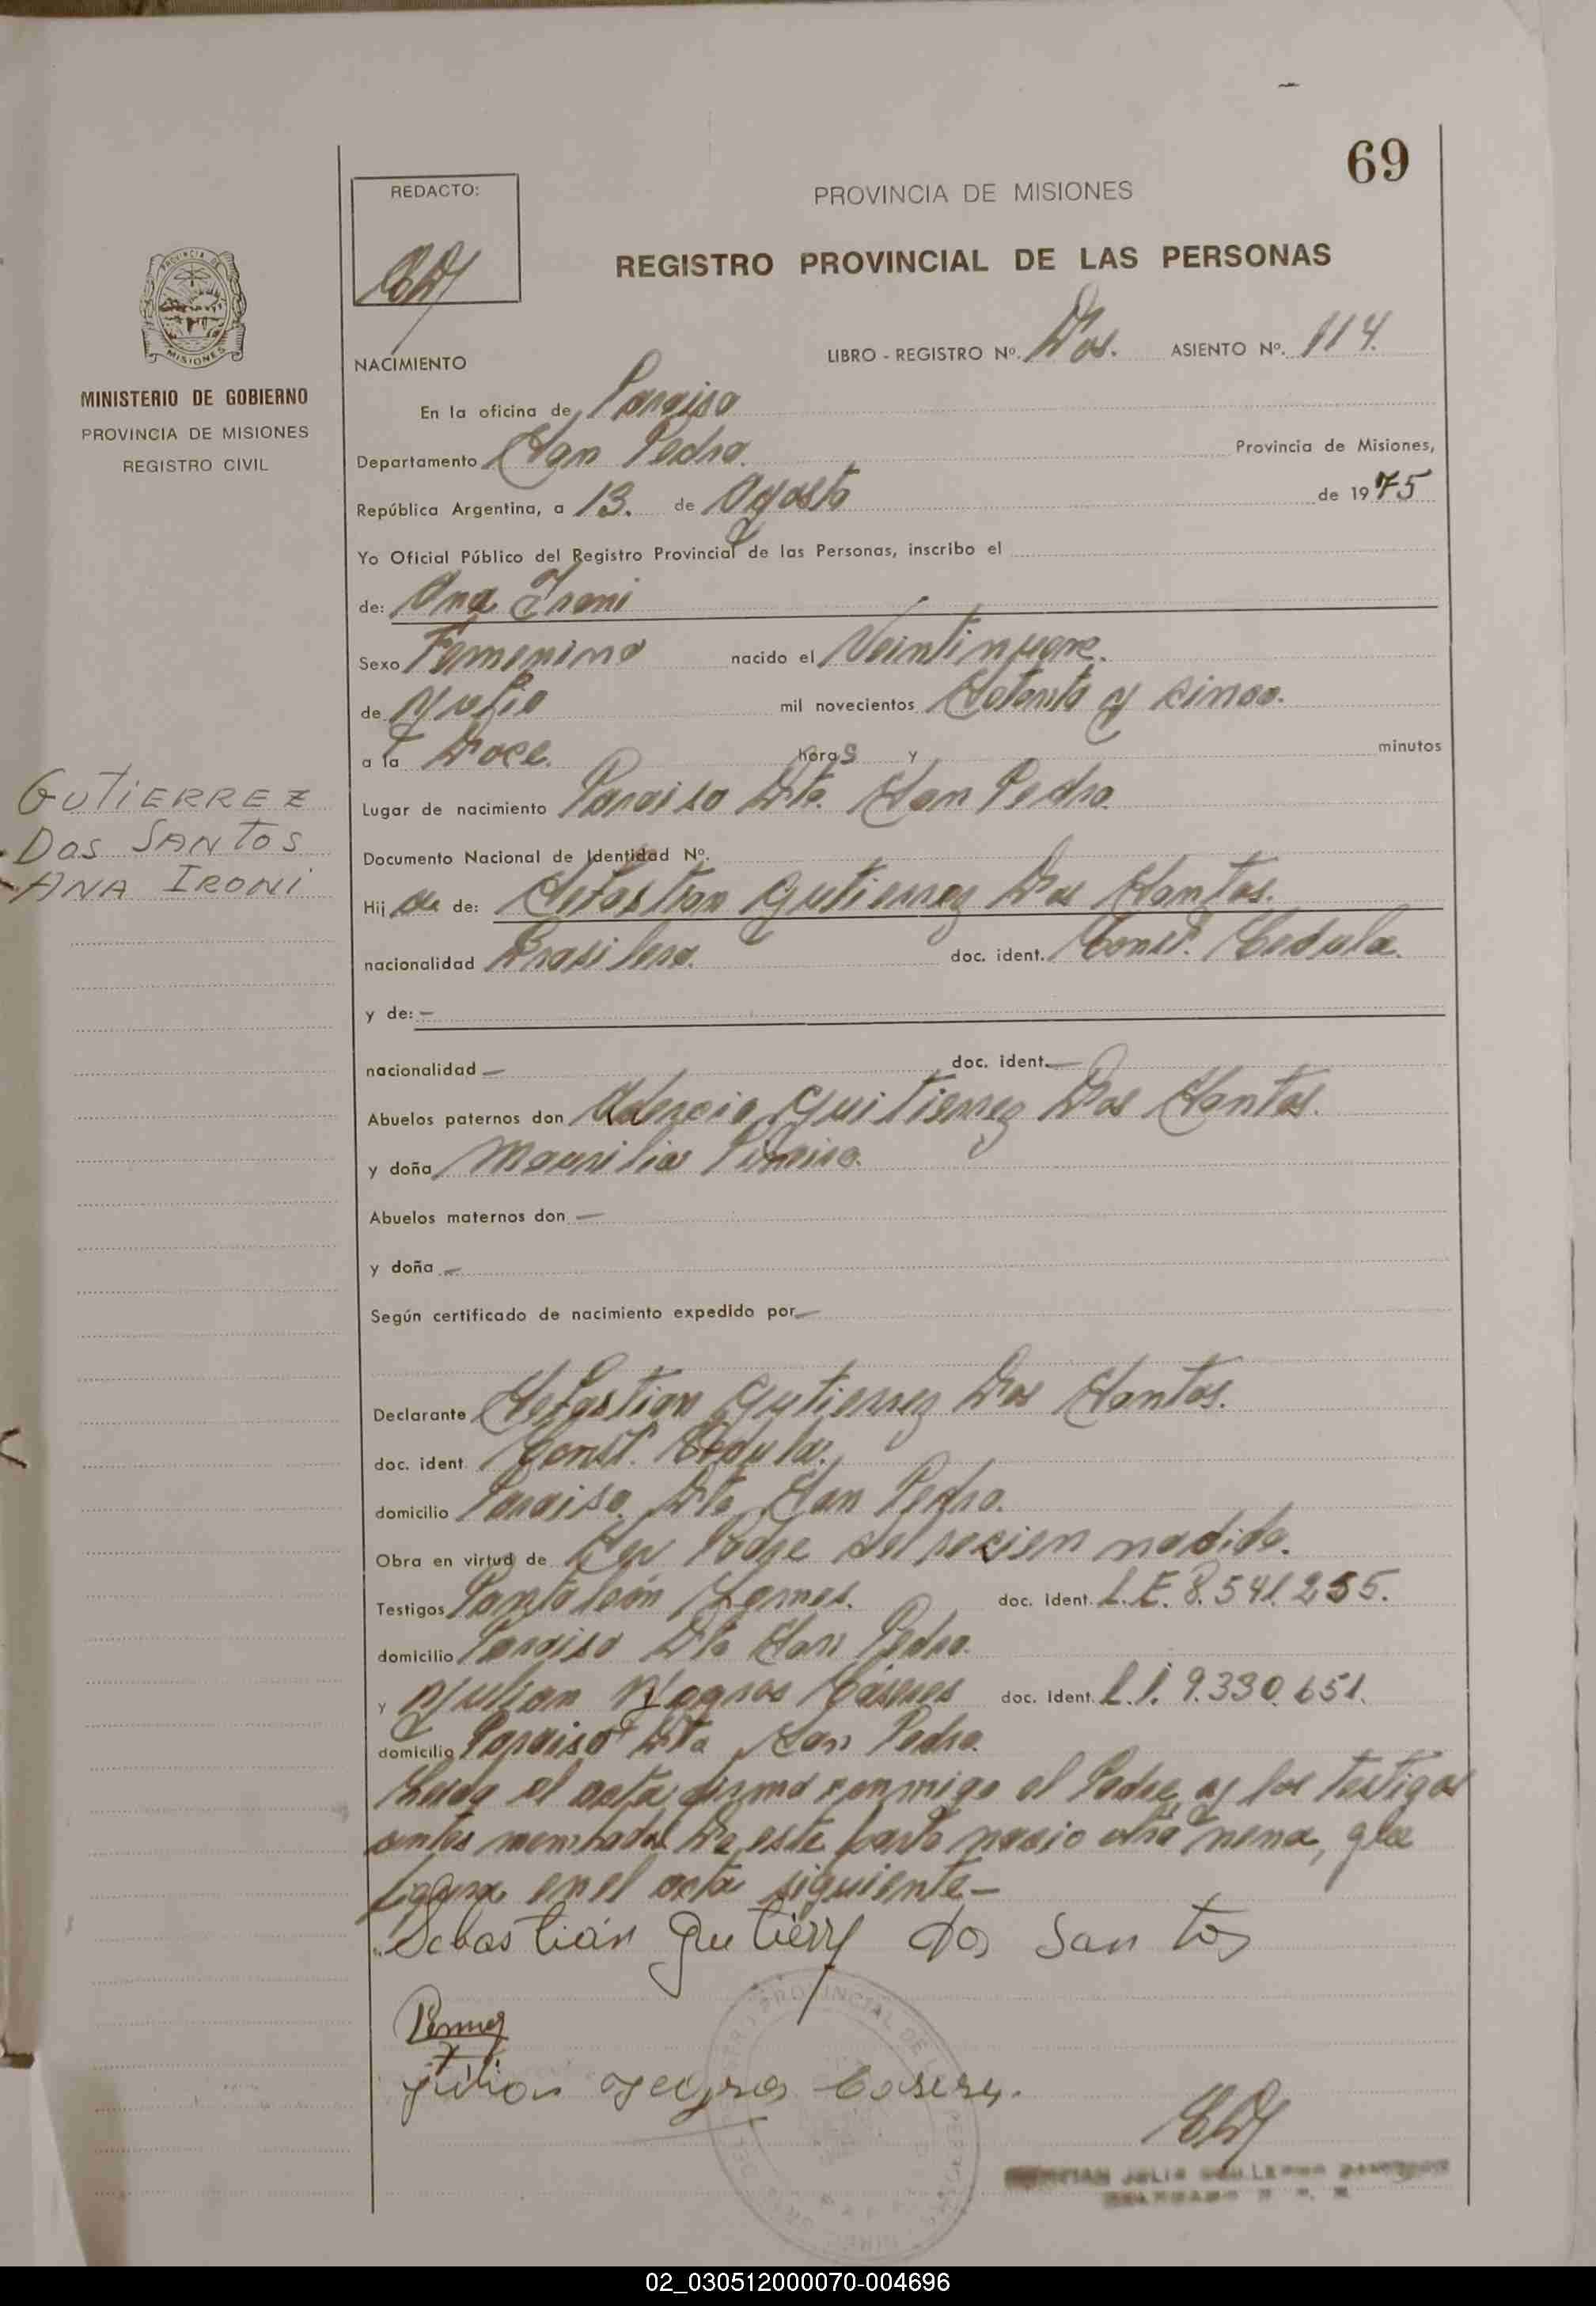 69
REDACTO:
PROVINCIA DE MISIONES
REGISTRO PROVINCIAL DE LAS PERSONAS
MISIONES
MINISTERIO DE GOBIERNO
PROVINCIA DE MISIONES
REGISTRO CIVIL
NACIMIENTO LIBRO - REGISTRO Nº. Dos. ASIENTO Nº. 114.
En la oficina de Paraiso
Departamento San Pedro. Provincia de Misiones,
República Argentina, a 13. de Agosto de 1975
Yo Oficial Público del Registro Provincial de las Personas, inscribo el
de: Ana Ironi
Sexo Femenino nacido el Veintinueve.
de Julio mil novecientos Setenta y cinco.
a la Doce. horas y minutos
Lugar de nacimiento Paraiso Dto. San Pedro
GUTIERREZ
DOS SANTOS
ANA IRONI
Documento Nacional de Identidad Nº.
Hij de: Sebastian Gutierrez Dos Santos.
nacionalidad Brasilera. doc. ident. Const. Cedula.
y de: —
nacionalidad — doc. ident. —
Abuelos paternos don Guitierrez Dos Santos.
y doña
Abuelos maternos don —
y doña —
Según certificado de nacimiento expedido por —
Declarante Sebastian Gutierrez Dos Santos.
doc. ident Const. Cedula.
domicilio Paraiso. Dto San Pedro.
Obra en virtud de Ser Padre del recien nacido.
Testigos Pantaleón doc. Ident. L.E. 8.541.255.
domicilio Paraiso Dto San Pedro.
y Julian doc. Ident. 9.330.651.
domicilio Paraiso Dto San Pedro.
el acta firma conmigo el Padre y los testigos
antes nombrados De este parto nacio otra nena, que
figura en el acta siguiente —
Sebastián Gutierrez dos Santos
Julian
02_030512000070-004696